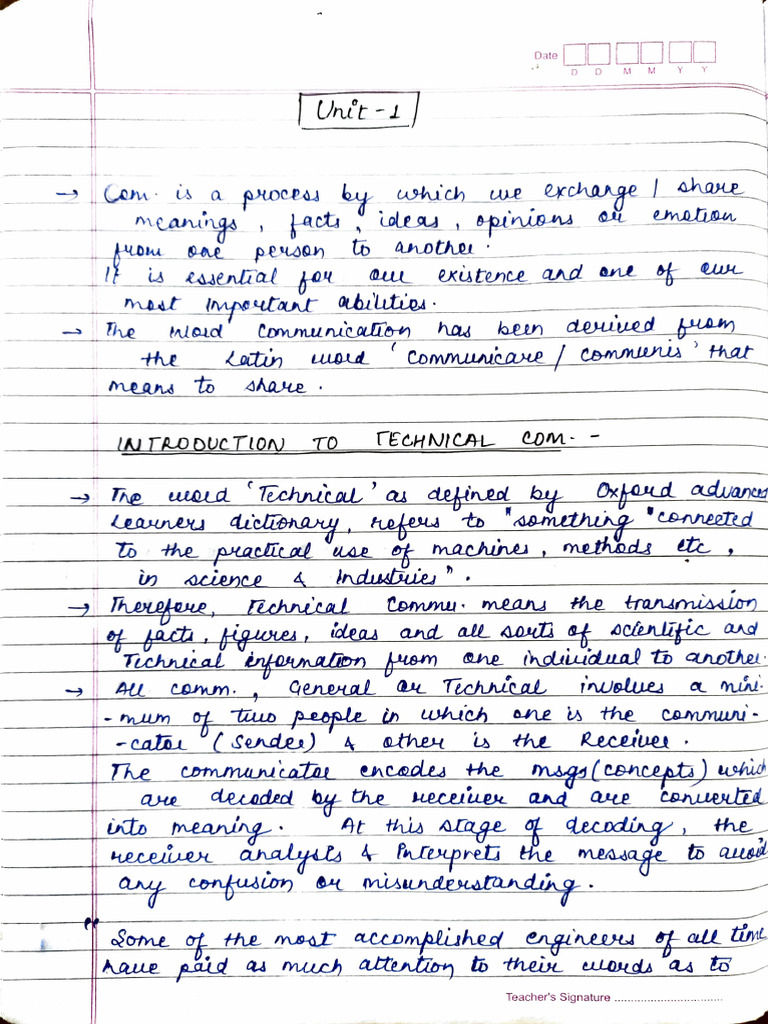 Date
D D M M Y Y
Unit-1
→ Com. is a process by which we exchange / share
meanings, facts, ideas, opinions or emotion
from one person to another.
It is essential for our existence and one of our
most important abilities.
→ The word communication has been derived from
the Latin word 'communicare / communis' that
means to share.
INTRODUCTION TO TECHNICAL COM. -
→ The word 'Technical' as defined by Oxford advanced
Learners dictionary, refers to "something "connected
to the practical use of machines, methods etc,
in science & Industries".
→ Therefore, Technical Commu. means the transmission
of facts, figures, ideas and all sorts of scientific and
Technical information from one individual to another.
→ All comm., General or Technical involves a mini-
-mum of two people in which one is the communi-
-cator (Sender) & other is the Receiver.
The communicator encodes the msgs (concepts) which
are decoded by the receiver and are converted
into meaning. At this stage of decoding, the
receiver analysis & Interprets the message to avoid
any confusion or misunderstanding.
" Some of the most accomplished engineers of all time
have paid as much attention to their words as to
Teacher's Signature